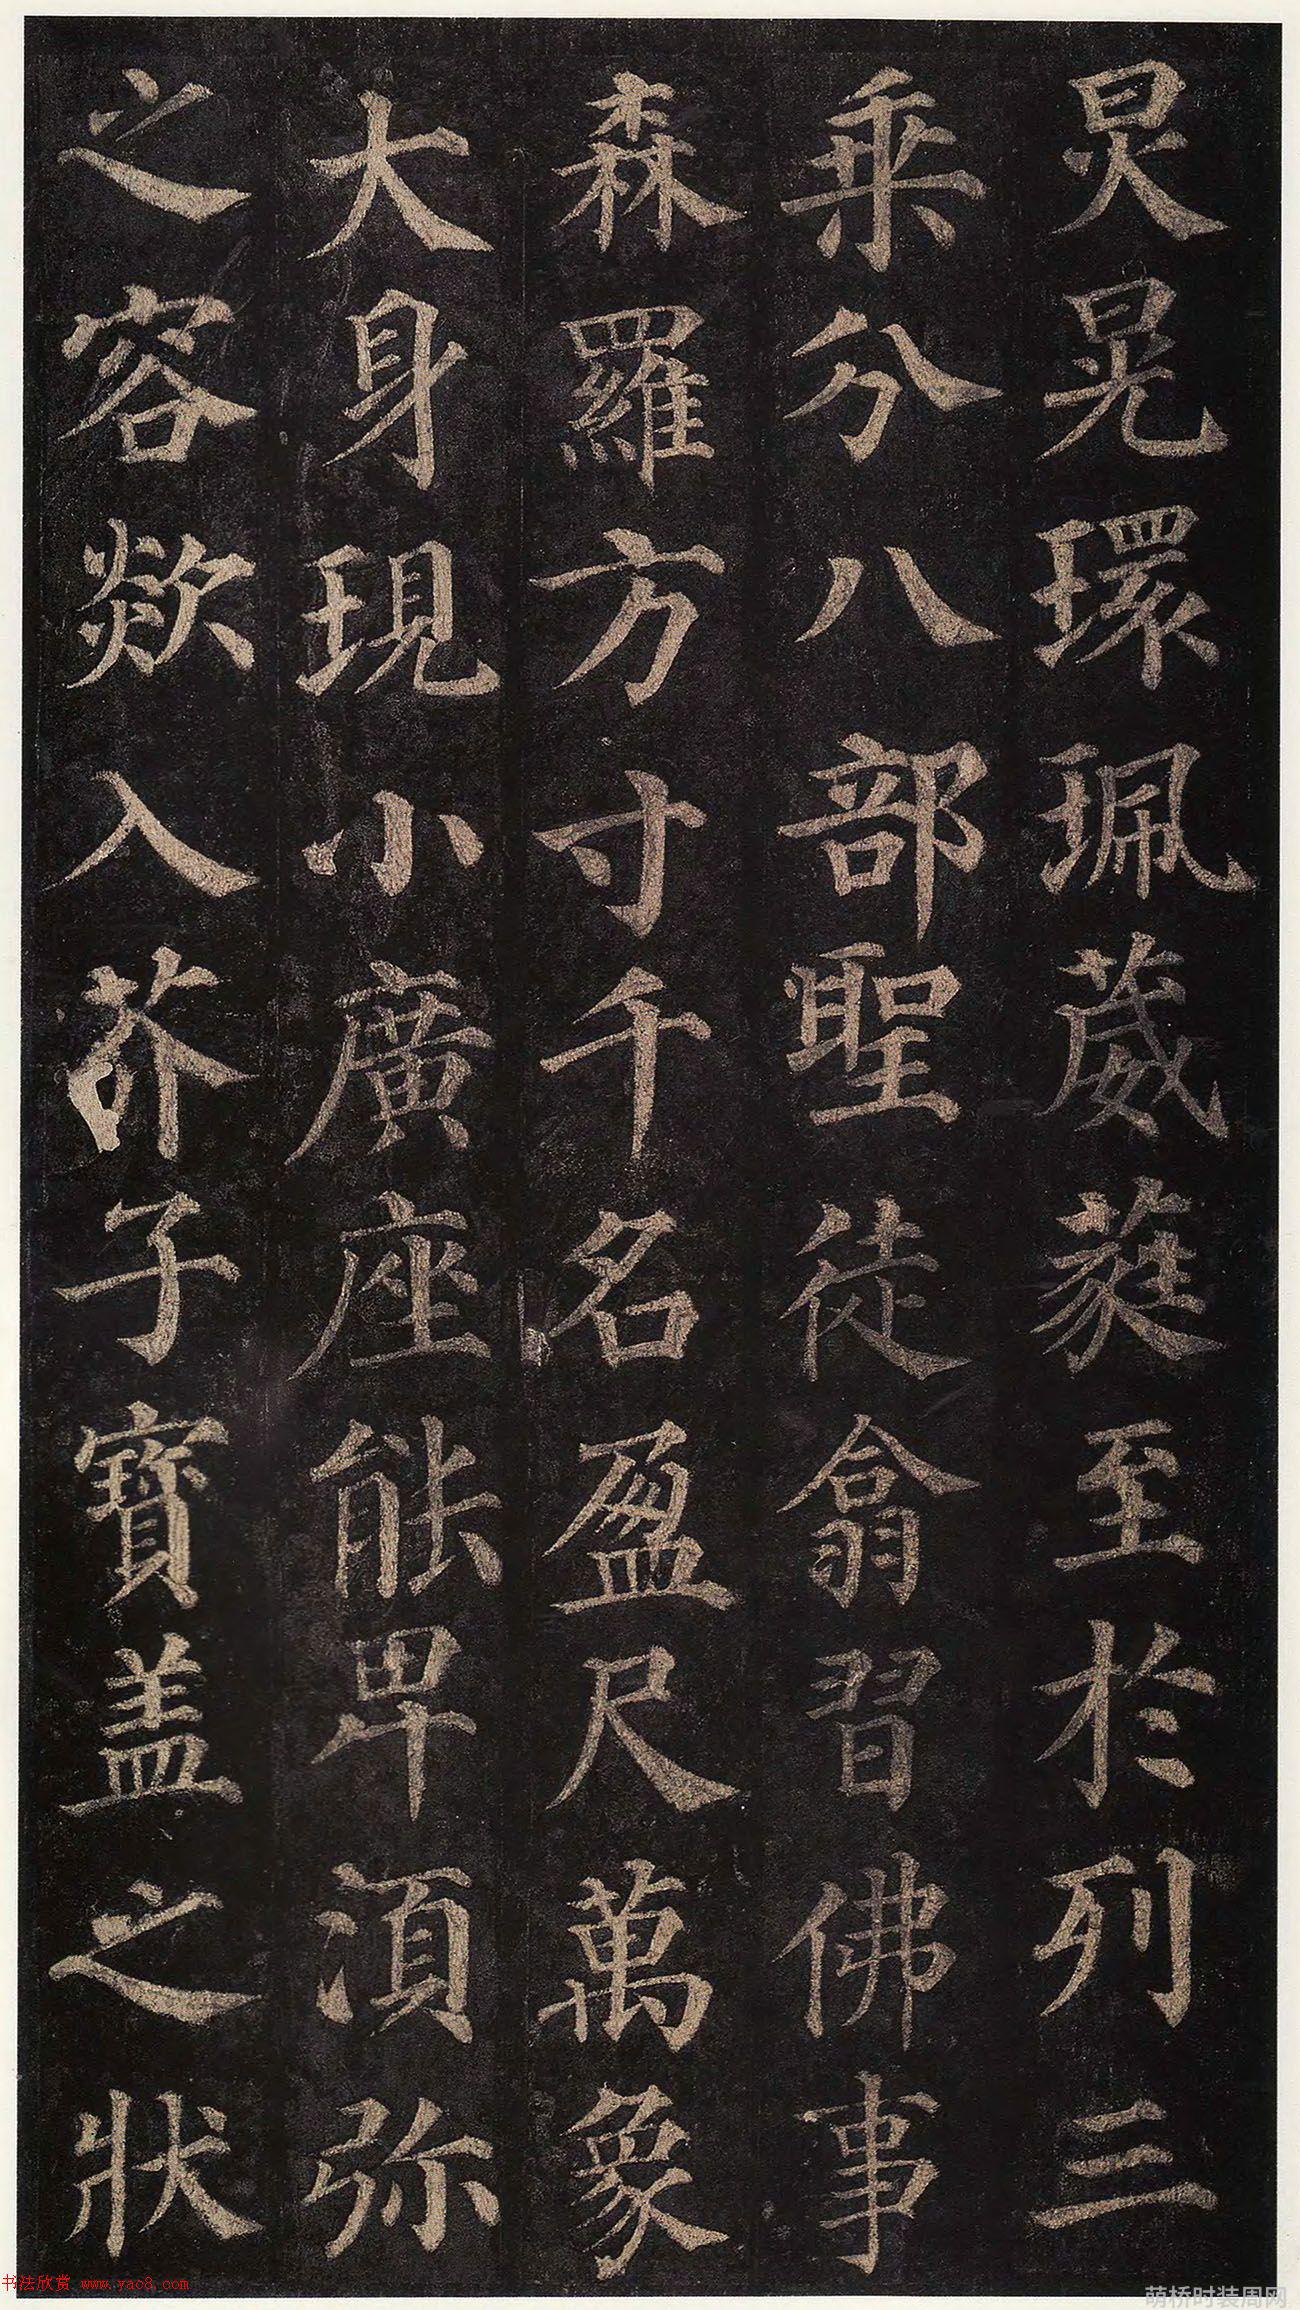 炅晃環珮葳蕤至於列三
乘分八部聖徒翕習佛事
森羅方寸千名盈尺萬象
大身現小廣座能卑須弥
之容欻入芥子寶盖之狀
书法欣赏 www.yac8.com
萌桥时装周网